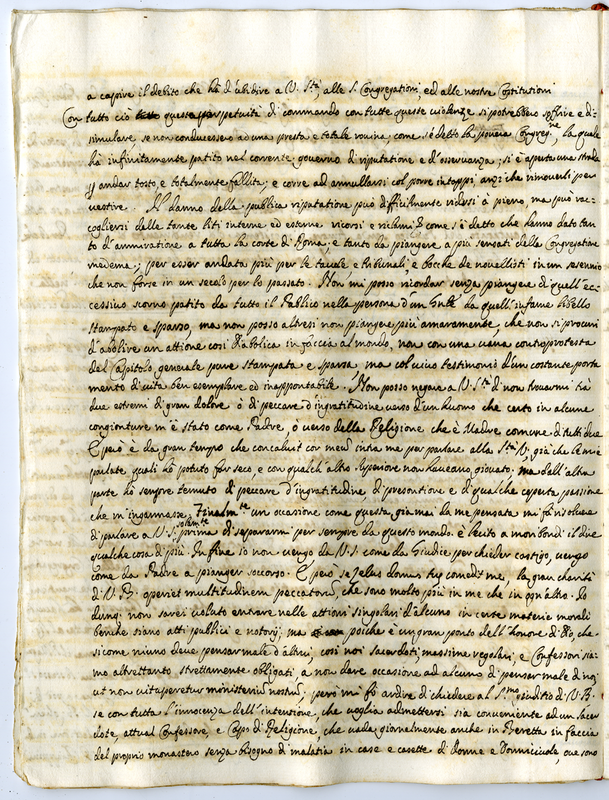 a capire il debito che hà d'ubidire a V. Stà, alle S. Congregationi, ed alle nostre Costitutioni
Con tutto ciò questa perpetuità di commando con tutte queste violenze si potrebbero soffrire e dis-
simulare, se non conducessero ad una presta e totale rouina, come s'è detto la pouera Congregne, la quale
hà infinitamente patito nel corrente gouerno di riputatione e d'osseruanza; si è aperta una strada
andar tosto, e totalmente fallita, e corre ad annullarsi col porre intoppi, anzi che rimouerli per
vestire. Il danno della publica riputatione può difficilmente vidersi à pieno, ma può rac-
cogliersi dalle tante liti interne ed esterne ricorsi e richiami come s'è detto che hanno dato tan-
to d'ammiratione a tutta la corte di Roma, e tanto da piangere a più sensati della Congregatione
medema, per esser andata più per le tauole e tribunali, e bocche de nouellisti in un sesennio
che non forse in un secolo per lo passato. Non mi posso ricordar senza piangere di quell'ec-
cessiuo scorno patito da tutto il Publico nella persona d'un Gnle da quell'infame libello
stampato e sparso, ma non posso altresi non piangere più amaramente, che non si procuri
d'abolire un attione cosi diabolica in faccia al mondo, non con una vana controprotesta
del Capitolo generale pure stampata e sparsa ma col viuo testimonio d'un costante porta
mento di uita ben esemplare ed inappontabile. Non posso negare a V. Stà di non trouarmi trà
due estremi di gran dolore ò di peccare d'ingratitudine verso d'un huomo che certo in alcune
congionture m'è stato come Padre, ò verso della Religione che è Madre comune di tutti due
E però è da gran tempo che concaluit cor meum intra me per parlare alla Stà V., già che le mie
parlate quali hò potuto far seco, e con qualch'altro superiore non haueano giouato. ma dall'altra
parte hò sempre temuto di peccare d'ingratitudine di presontione e di qualche coperta passione
che m'ingannasse, finalmte un occasione come questa già mai da me pensata mi fà risoluere
di parlare a V. S. solamte prima di separarmi per sempre da questo mondo. è lecito a moribondi il dire
qualche cosa di più. In fine io non uengo da V. S. come da Giudice per chieder castigo, uengo
come da Padre a pianger soccorso. E però se zelus domus tuę comedit me, la gran charità
di V. B. operiet multitudinem peccatorum, che sono molto più in me che in ogn'altro. Io
dunq; non sarei uoluto entrare nelle attioni singolari d'alcuno in certe materie morali
benche siano atti publici e notorij; ma poiche è un gran ponto dell'honore di Dio, che
sicome niuno deve pensar male d'altrui, cosi noi sacerdoti, massime regolari, e Confessori sia-
mo altrettanto strettamente obligati a non dare occasione ad alcuno di pensar male di noi
ut non vituperetur ministerium nostrum, però mi fò ardire di chiedere al Smo giuditio di V. B.
se con tutta l'innocenza dell'intentione, che uoglia admettersi sia conueniente ad un Sacer
dote, attual Confessore, e Capo di Religione, che uada giornalmente anche in Beretta in faccia
del proprio monastero senza bisogno di malatia in case e casette di donne e Donnicciuole, oue sono